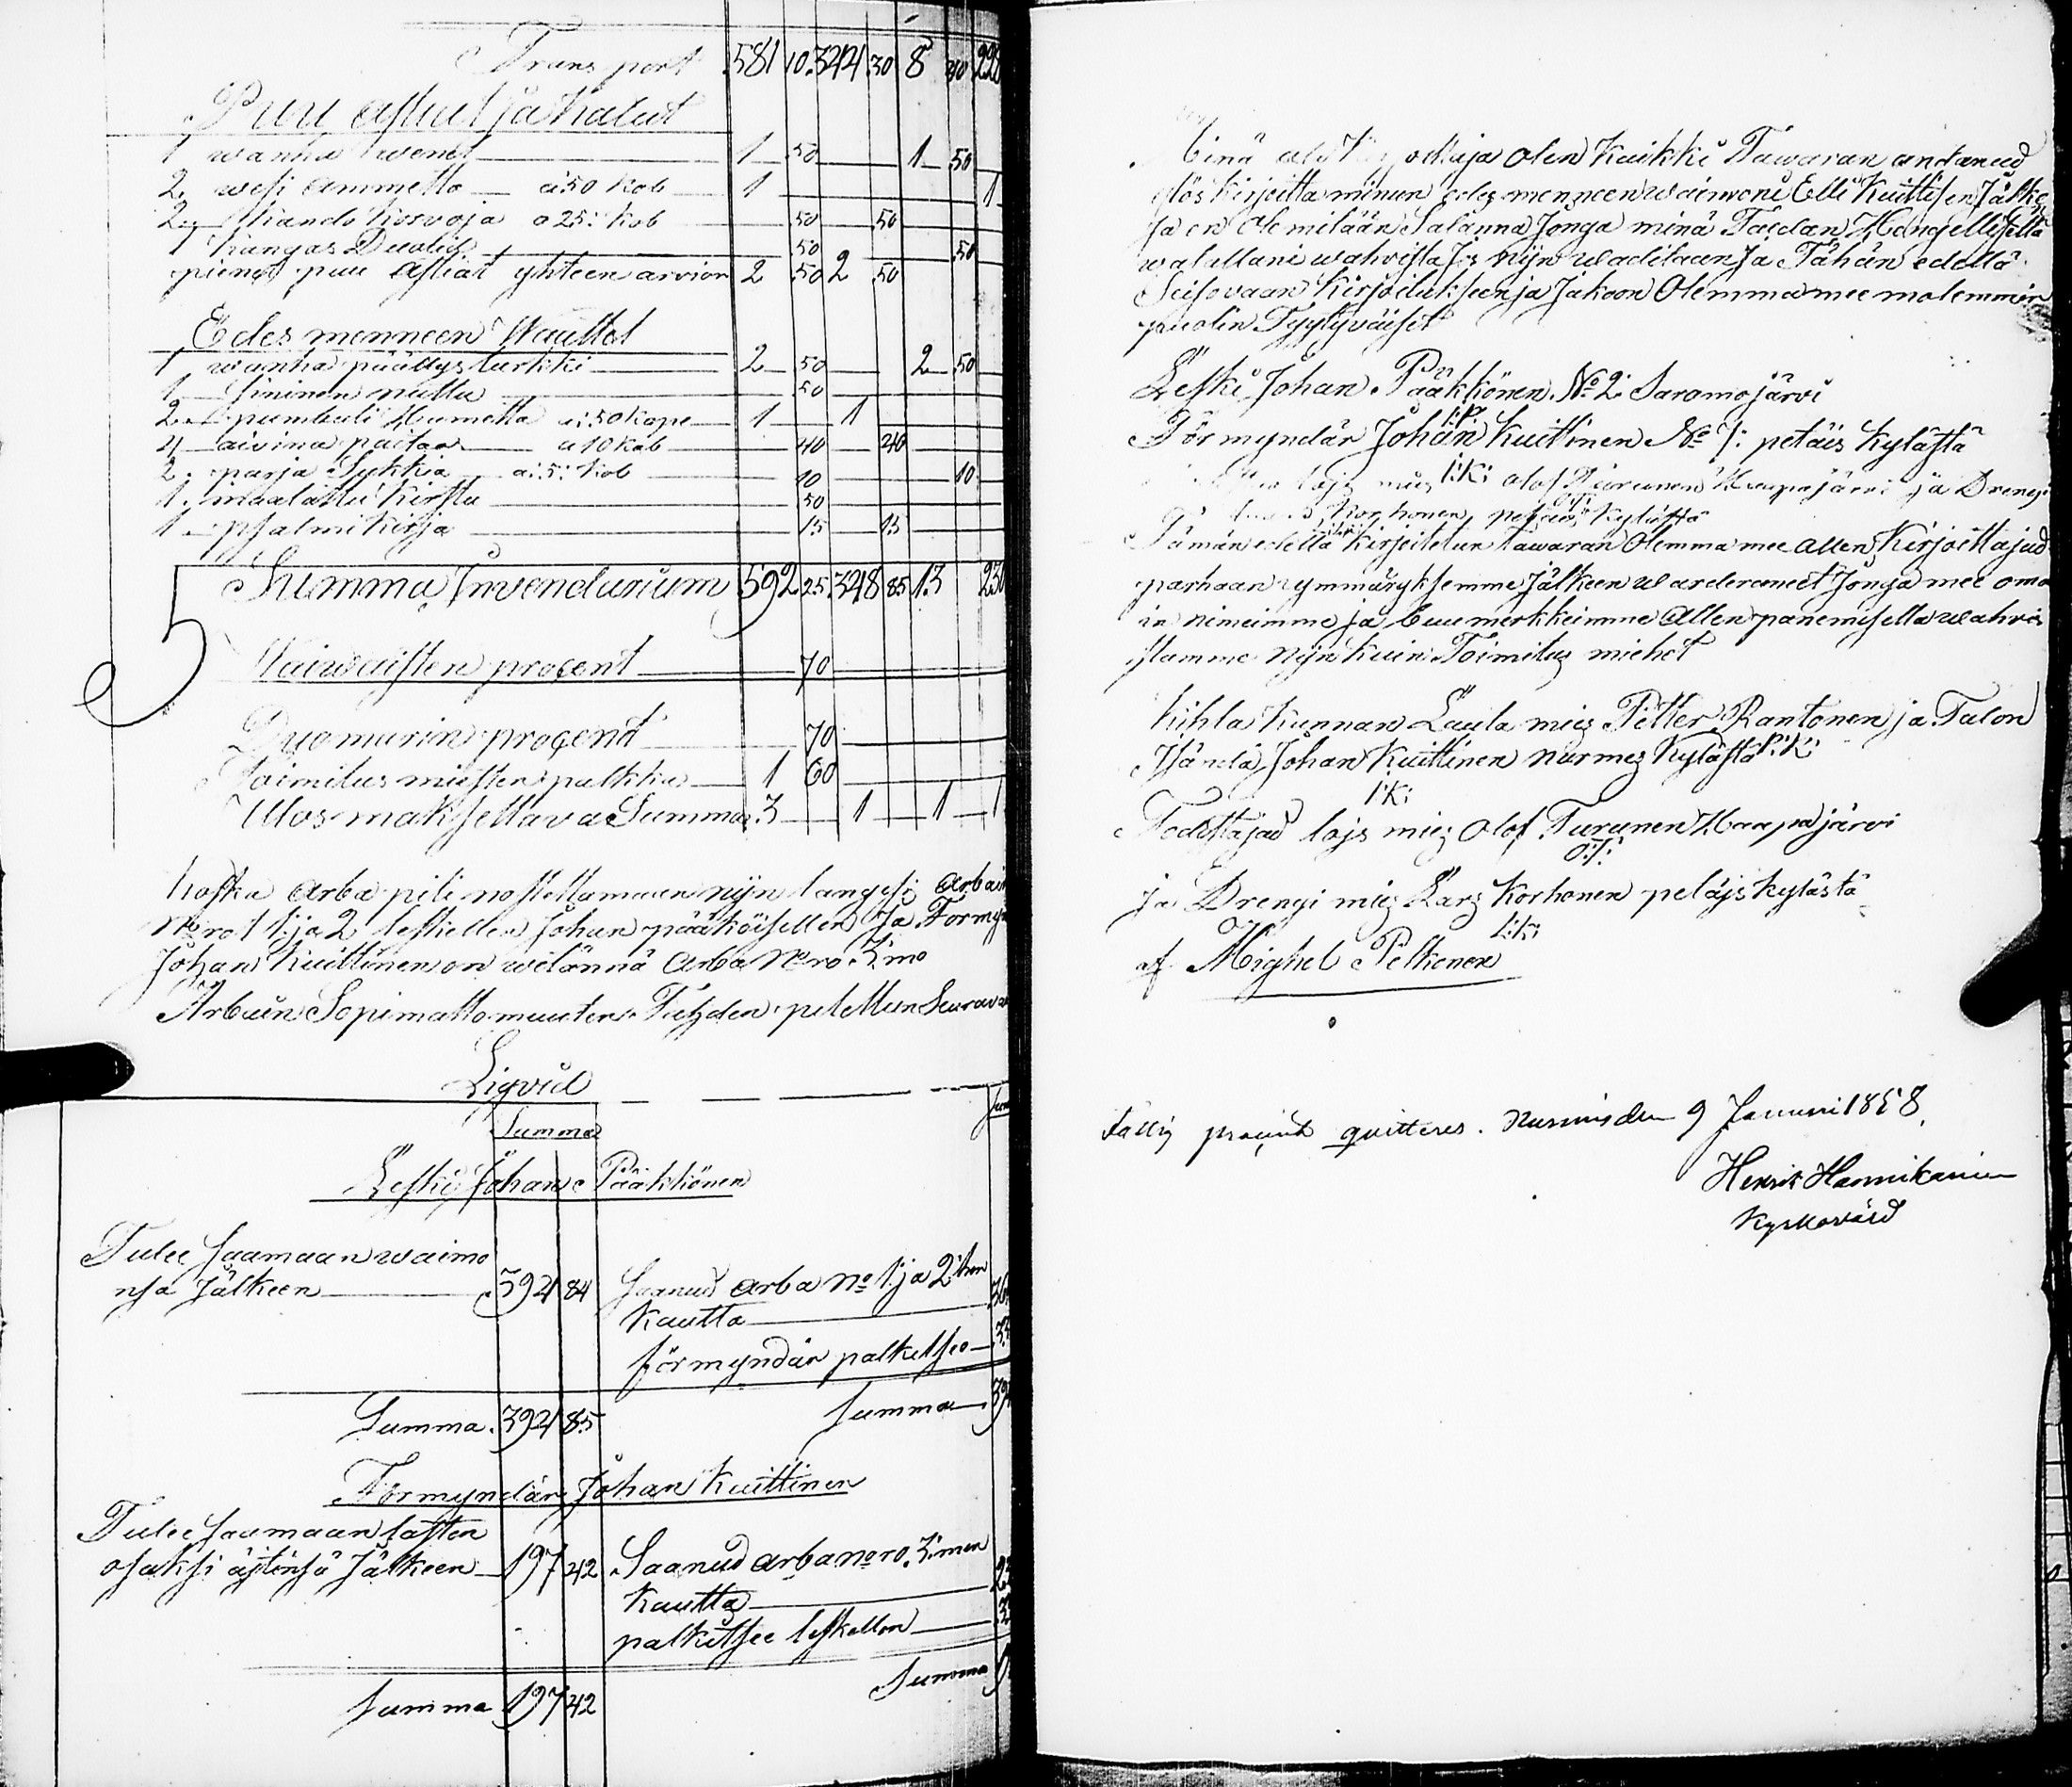 Transport 581 10 344 30 8 40 228
Puu astiat ja Kalut
1 wanha wene 1 50 1 50
2 wesi ammetta a 50 kob 1 1
2 kando korvoja a 25: kob 50 50
1 kangas 50 50
pienet puu astiat yhteen arvion 2 50 2 50
Edes menneen Waattet
1 wanha päällys turkki 2 50 2 50
1 sininen nuttu 50
2 pumbuli Hametta a: 50 kope 1 1
4 aivina paitaa a 10 kob 40 40
2. parja Sukkia a: 5: kob 10 10
1. maalattu kirstu 50
1 psalmikirja 15 15
Summa Invendarium 592 25 348 85 13 230
Waiwaisten procent 70
Duomarin procend 70
Toimitus miesten palkka 1 60
Ulos maksettava Summa 3 1 1 1
Koska arba piti nostettamaan nijn langesi arbain
Nro 1 ja 2 leskellen Johan pääköisellen Ja Förmyn
Johan Kuittinen on wetännä arba Nro 3mo
Arbain Sopimattomuuten Tähden pitettun Seurava
Liqvid
Summa
Leski Johan Pääkkönen
Tulee Saamaan waimo
nsa Jälkeen 392 84 Saanud arba No 1: ja 2:hen
Kautta
förmyndär palkitsee
Summa. 392 85 Summa
Förmyndär Johan Kuittinen
Tulee Saamaan lasten
osaksi äjtinsä Jälkeen 197 42 Saanud arba nro. 3:men
Kautta
palkitsee leskellen
Summa 197 42 Summa
Minä joka ja olen kaikki Tawaran andanud
ylös kirjoitta minun edes menneen waimoni Elli Kuittisen Jälke
ja en ole mitään Salanna Jonga minä Taidan Hengellisellä
walallani wahvista Jos nijn waaditaan Ja Tähän edellä
Seisovaan kirjoitukseen ja Jakoon Olemma mee molemmin
puolin Tyytyväiset
Leski Johan Pääkkönen No 2 Saramojärvi
I:P:
Förmyndär Johan Kuittinen No 7: petäis kylästä
I:K: olof Turunen Haapajärvi ja Drengi
Korhonen petäis kylästä
Tämän edellä kirjoitetun tawaran Olemma mee allen kirjoittajad
parhaan ymmäryksemme Jälkeen warderaneet Jonga mee oma
in nimeimme ja buumerkkeimme allen panemisella wahvi
stamme nijn kuin Toimitus miehet
kihla kunnan Lauta mies Petter Rantonen ja Talon
P:R:
Isändä Johan Kuittinen nurmes kylästä
I:K:
Todistajad lojs mies Olof Turunen Haapajärvi
O:T:
ja Drengi mies Lars Korhonen petäjs kylästä
L:K:
af Mighel Pelkonen
fattig procent quitteres. Nurmis den 9 Januari 1858.
Henrik Hannikainen
Kyrkovärd